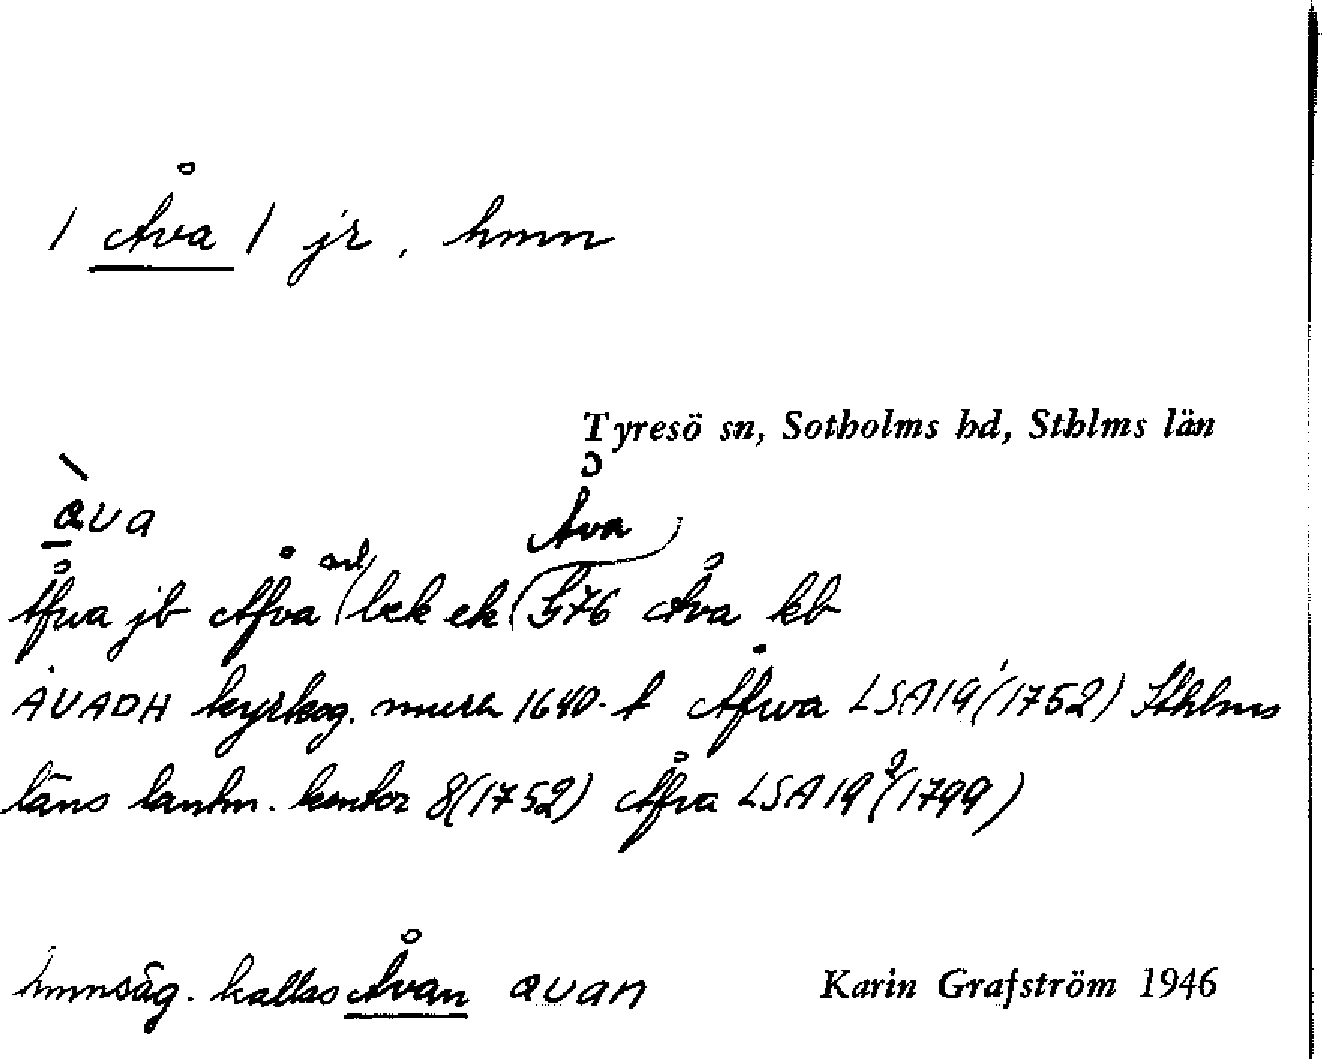 / Åva / jr, hmn
Tyresö sn, Sotholms hd, Sthlms län
àva
Åva
Åfwa jb Åfva (bek ek G76 Åva kb
ÅVADH kyrkog. mura 1640-t Åfwa LSA 19¹(1752) Sthlms
läns lantm. kontor 8(1752) Åfva LSA 19²(1799)
hmnsäg. kallas Åvan avan
Karin Grafström 1946